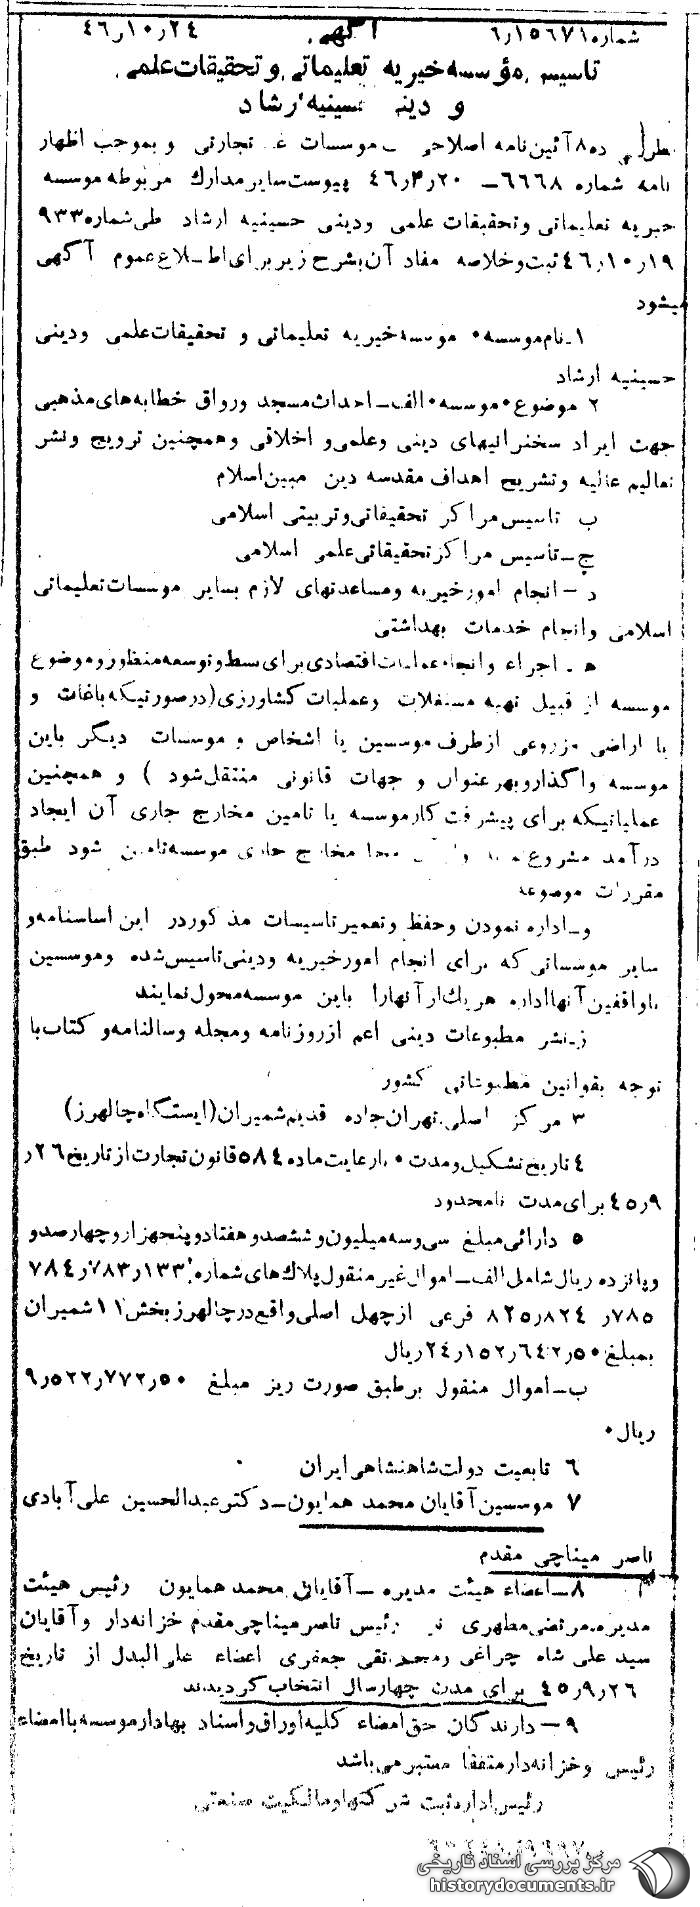 شماره ۶٫۱۵۶۷۱ آگهی ۴۶٫۱۰٫۲۴
تاسیس مؤسسه خیریه تعلیماتی وتحقیقات علمی
و دینی حسینیه ارشاد
ده ۸ آئین نامه اصلاحی موسسات تجارتی و بموجب اظهار
نامه شماره ۶۶۶۸ – ۴۶٫۳٫۲۰ پیوست سایر مدارک مربوطه موسسه
خیریه تعلیماتی وتحقیقات علمی ودینی حسینیه ارشاد طی شماره ۹۳۳
۴۶٫۱۰٫۱۹ ثبت وخلاصه مفاد آن بشرح زیر برای اطلاع عموم آگهی
میشود
۱ـ نام موسسه۰ موسسه خیریه تعلیماتی و تحقیقات علمی ودینی
حسینیه ارشاد
۲ موضوع موسسه۰ الف ـ احداث مسجد ورواق خطابه های مذهبی
جهت ایراد سخنرانیهای دینی وعلمی و اخلاقی وهمچنین ترویج ونشر
تعالیم عالیه وتشریح اهداف مقدسه دین مبین اسلام
ب تاسیس مراکز تحقیقاتی وتربیتی اسلامی
ج ـ تاسیس مراکز تحقیقاتی علمی اسلامی
د – انجام امور خیریه ومساعدتهای لازم بسایر موسسات تعلیماتی
اسلامی وانجام خدمات بهداشتی
ه ـ اجراء وانجام عملیات اقتصادی برای بسط وتوسعه منظور وموضوع
موسسه از قبیل تهیه مستغلات وعملیات کشاورزی (درصورتیکه باغات و
یا اراضی مزروعی از طرف موسسین یا اشخاص و موسسات دیگر باین
موسسه واگذار وبهر عنوان و جهات قانونی منتقل شود ) و همچنین
عملیاتیکه برای پیشرفت کار موسسه یا تامین مخارج جاری آن ایجاد
درآمد مشروع مخارج جاری موسسه تامین شود طبق
مقررات موضوعه
و ـ اداره نمودن وحفظ وتعمیر تاسیسات مذکور در این اساسنامه و
سایر موسساتی که برای انجام امور خیریه ودینی تاسیس شده وموسسین
یا واقفین آنها اداره هریک از آنها را باین موسسه محول نمایند
ز ـ نشر مطبوعات دینی اعم از روزنامه ومجله وسالنامه و کتاب با
توجه بقوانین مطبوعاتی کشور
۳ مرکز اصلی تهران جاده قدیم شمیران (ایستگاه چالهرز)
۴ تاریخ تشکیل ومدت۰ بارعایت ماده ۵۸۴ قانون تجارت از تاریخ ۲۶٫
۴۵٫۹ برای مدت نامحدود
۵ دارائی مبلغ سی وسه میلیون و ششصد و هفتاد و پنجهزار و چهارصد و
وپانزده ریال شامل الف ـ اموال غیر منقول پلاک های شماره ۷۸۴٫۷۸۳٫۱۳۳
۷۸۵٫ ۸۲۵٫۸۲۴ فرعی از چهل اصلی واقع در چالهرز بخش ۱۱ شمیران
بمبلغ ۲۴٫۱۵۲٫۶۴۲٫۵۰ ریال
ب ـ اموال منقول بر طبق صورت ریز مبلغ ۹٫۵۲۲٫۷۷۲٫۵۰
ریال۰
۶ تابعیت دولت شاهنشاهی ایران
۷ موسسین آقایان محمد همایون ـ دکتر عبدالحسین علی آبادی
ناصر میناچی مقدم
۸ ـ اعضاء هیئت مدیره – آقایان محمد همایون رئیس هیئت
مدیره ـ مرتضی مطهری رئیس ناصر میناچی مقدم خزانه دار وآقایان
سید علی شاه چراغی ومحمد تقی جعفری اعضاء علی البدل از تاریخ
۴۵٫۹٫۲۶ برای مدت چهار سال انتخاب گردیدند
۹ – دارندگان حق امضاء کلیه اوراق واسناد بهادار موسسه با امضاء
رئیس وخزانه دار متفقا معتبر می باشد
رئیس اداره ثبت شرکتها ومالکیت صنعتی
مرکز بررسی اسناد تاریخی
historydocuments.ir